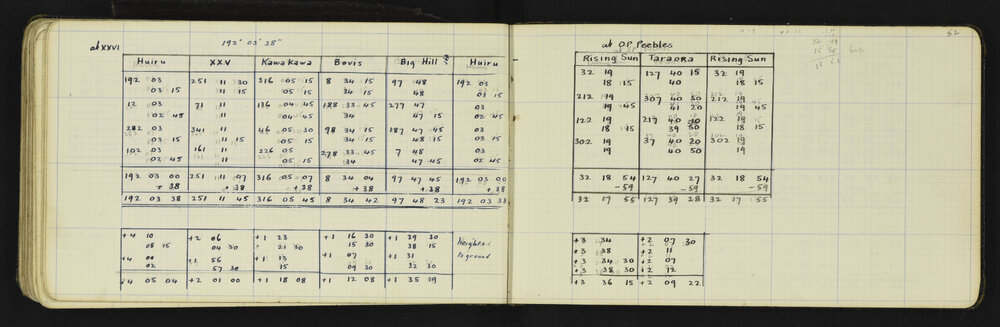 192° 03' 38"
at XXVI
Huiru XXV Kawa Kawa Bovis Big Hill Huiru
192 03 251 11 30 316 05 15 8 34 15 97 48 192 03
03 15 11 15 05 15 34 15 48 03 15
12 03 71 11 136 04 45 188 33 45 277 47 03
02 45 11 04 45 34 47 15 02 45
282 03 341 11 46 05 30 98 34 15 187 47 45 03
03 15 11 15 05 15 34 15 48 15 03 15
102 03 161 11 226 05 278 33 45 7 48 03
02 45 11 05 15 34 47 45 02 45
192 03 00 251 11 07 316 05 07 8 34 04 97 47 45 192 03 00
+38 +38 +38 +38 +38 +38
192 03 38 251 11 45 316 05 45 8 34 42 97 48 23 192 03 38
+4 10 +2 06 +1 23 +1 16 30 +1 39 30 Heighted
08 15 04 30 21 30 15 30 38 15 to ground
+4 00 +1 56 +1 13 +1 07 +1 31
02 57 30 15 09 30 32 30
+4 05 04 +2 01 00 +1 18 08 +1 12 08 +1 35 19
52
at O.P. Peebles
Rising Sun Taraora Rising Sun
32 19 127 40 15 32 19
18 15 40 18 15
212 19 307 40 50 212 19
19 45 41 20 19 45
122 19 217 40 10 122 19
18 15 39 50 18 15
302 19 37 40 20 302 19
19 40 50 19
32 18 54 127 40 27 32 18 54
-59 -59 -59
32 17 55 127 39 28 32 17 55
+3 34 +2 07 30
+3 38 +2 11
+3 34 30 +2 07
+3 38 30 +2 12
+3 36 15 +2 09 22